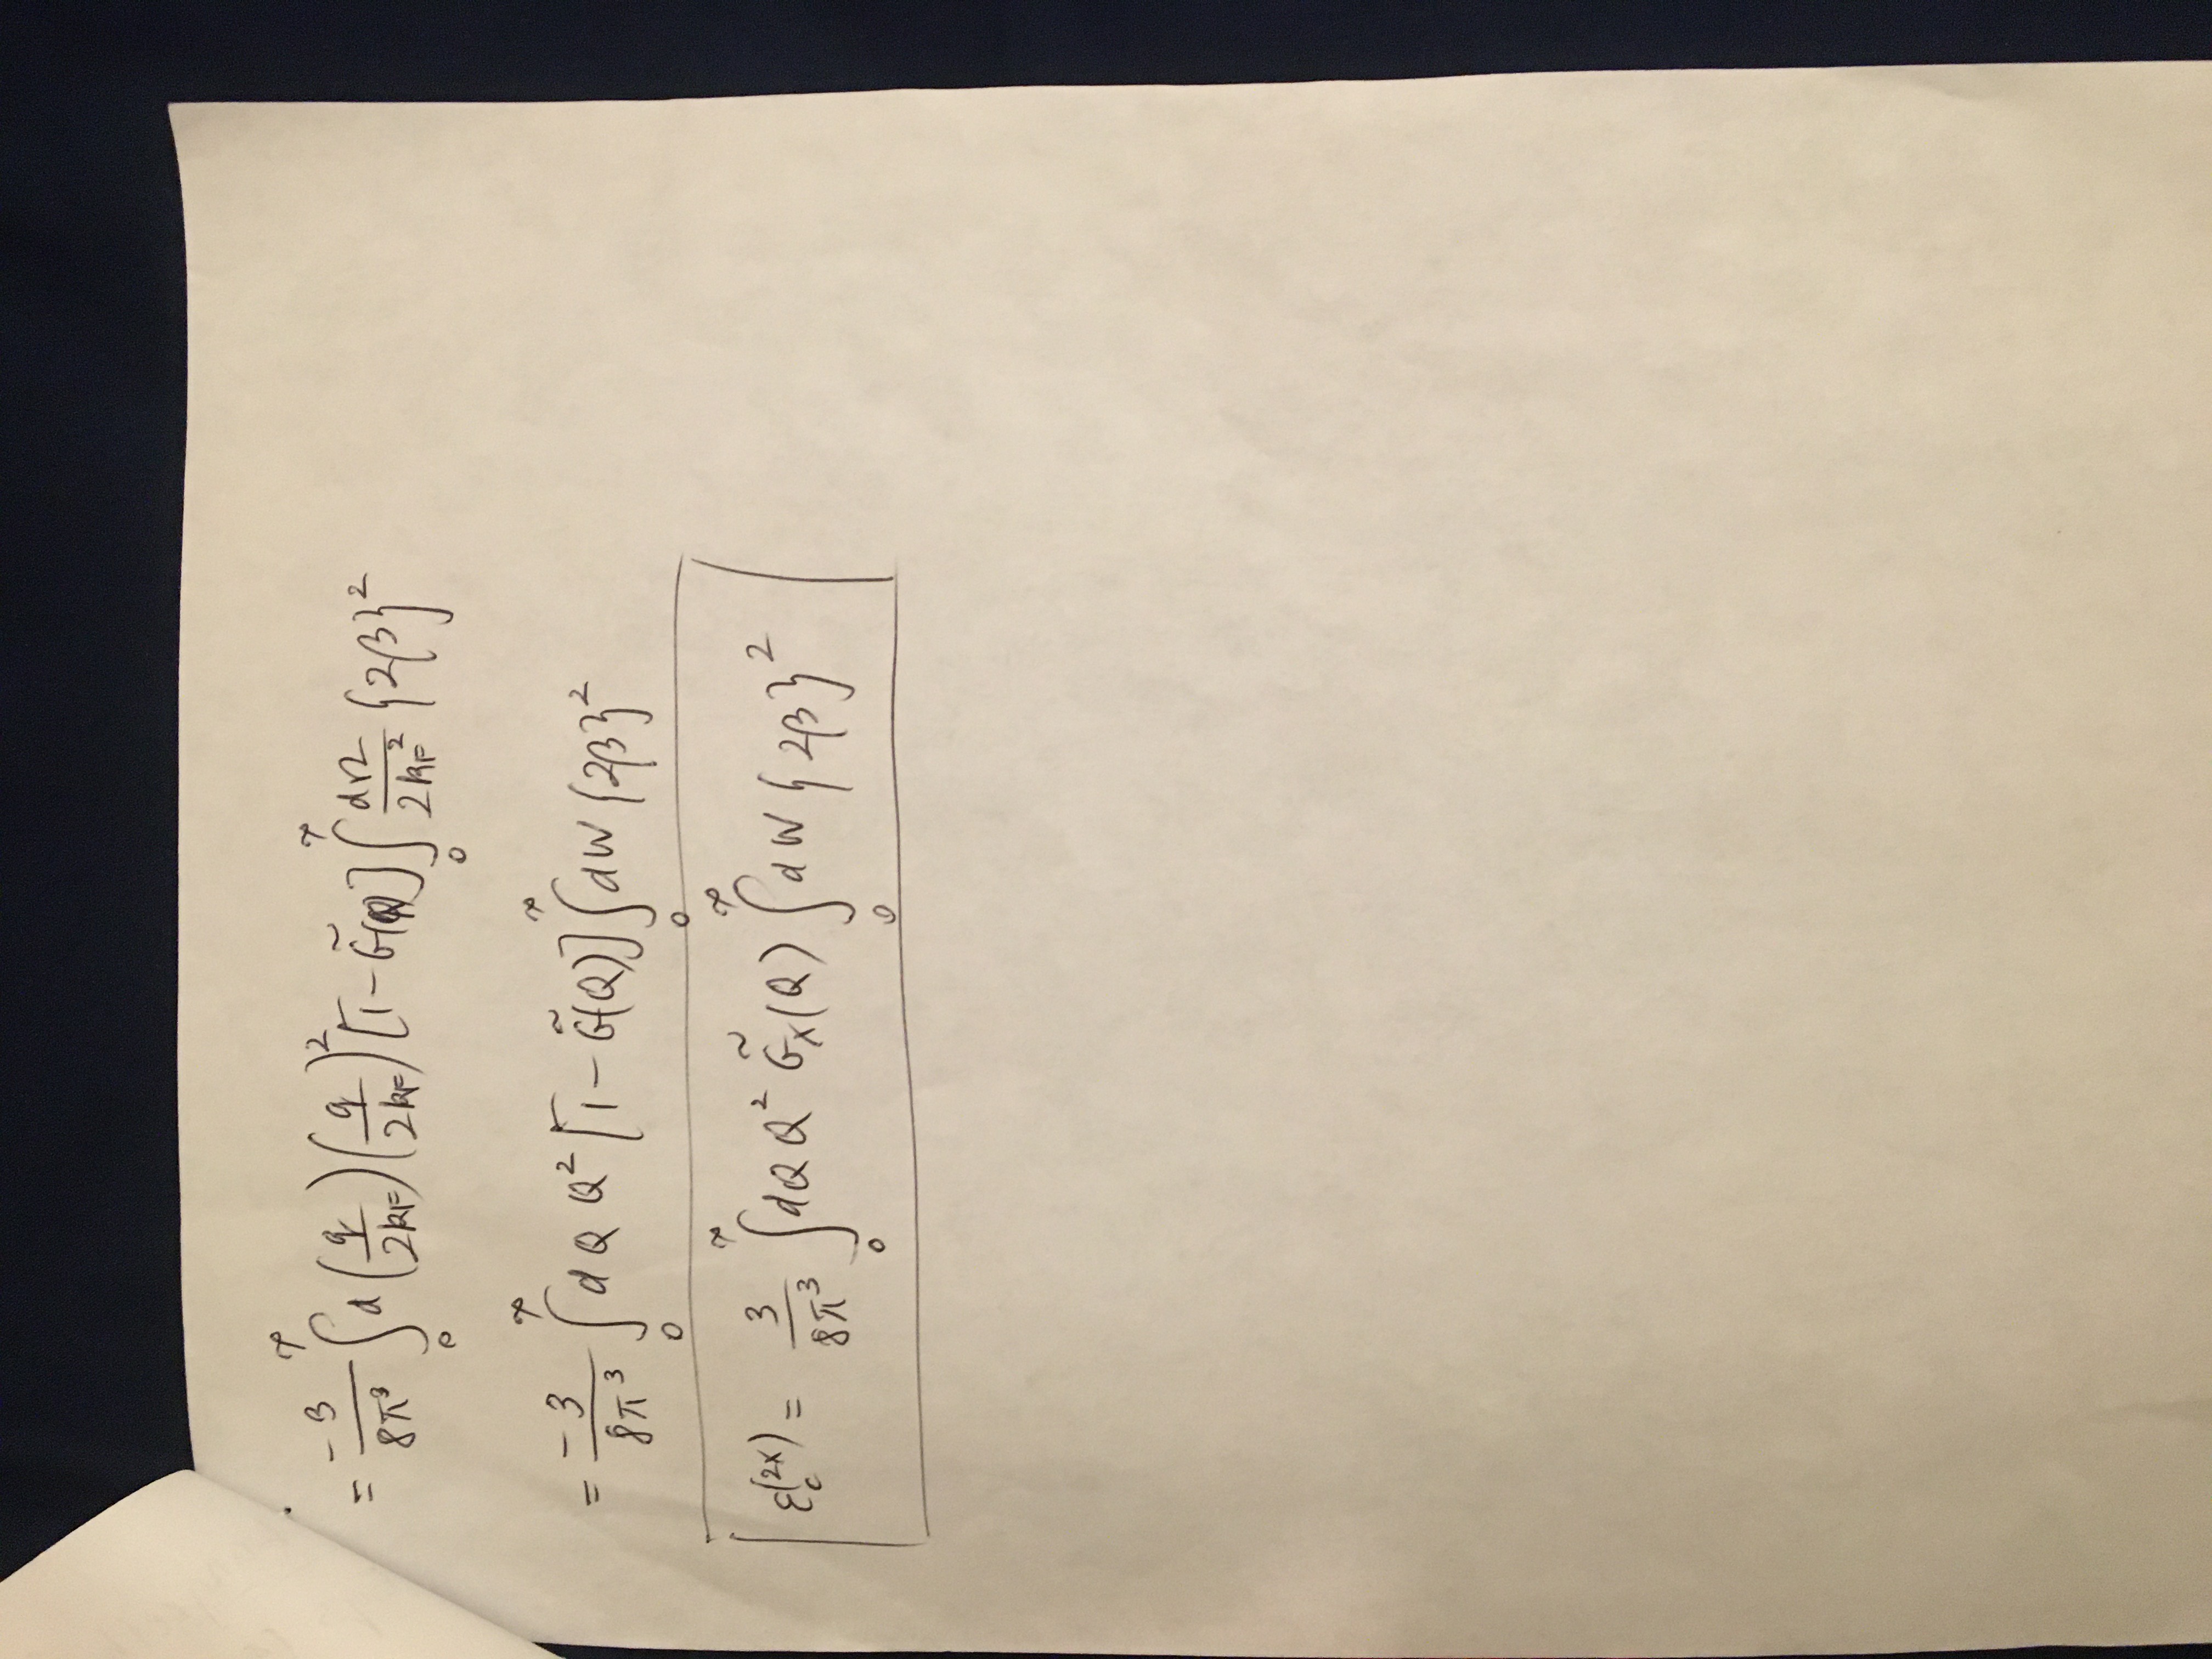 = -3/8π³ ∫₀^∞ d(q/2k_F) (q/2k_F)² [1 - G̃(Q)] ∫₀^∞ dΩ/2k_F² {2β}²
= -3/8π³ ∫₀^∞ dQ Q² [1 - G̃(Q)] ∫₀^∞ dW {2β}²
ε_c^(2x) = 3/8π³ ∫₀^∞ dQ Q² G̃_x(Q) ∫₀^∞ dW {2β}²